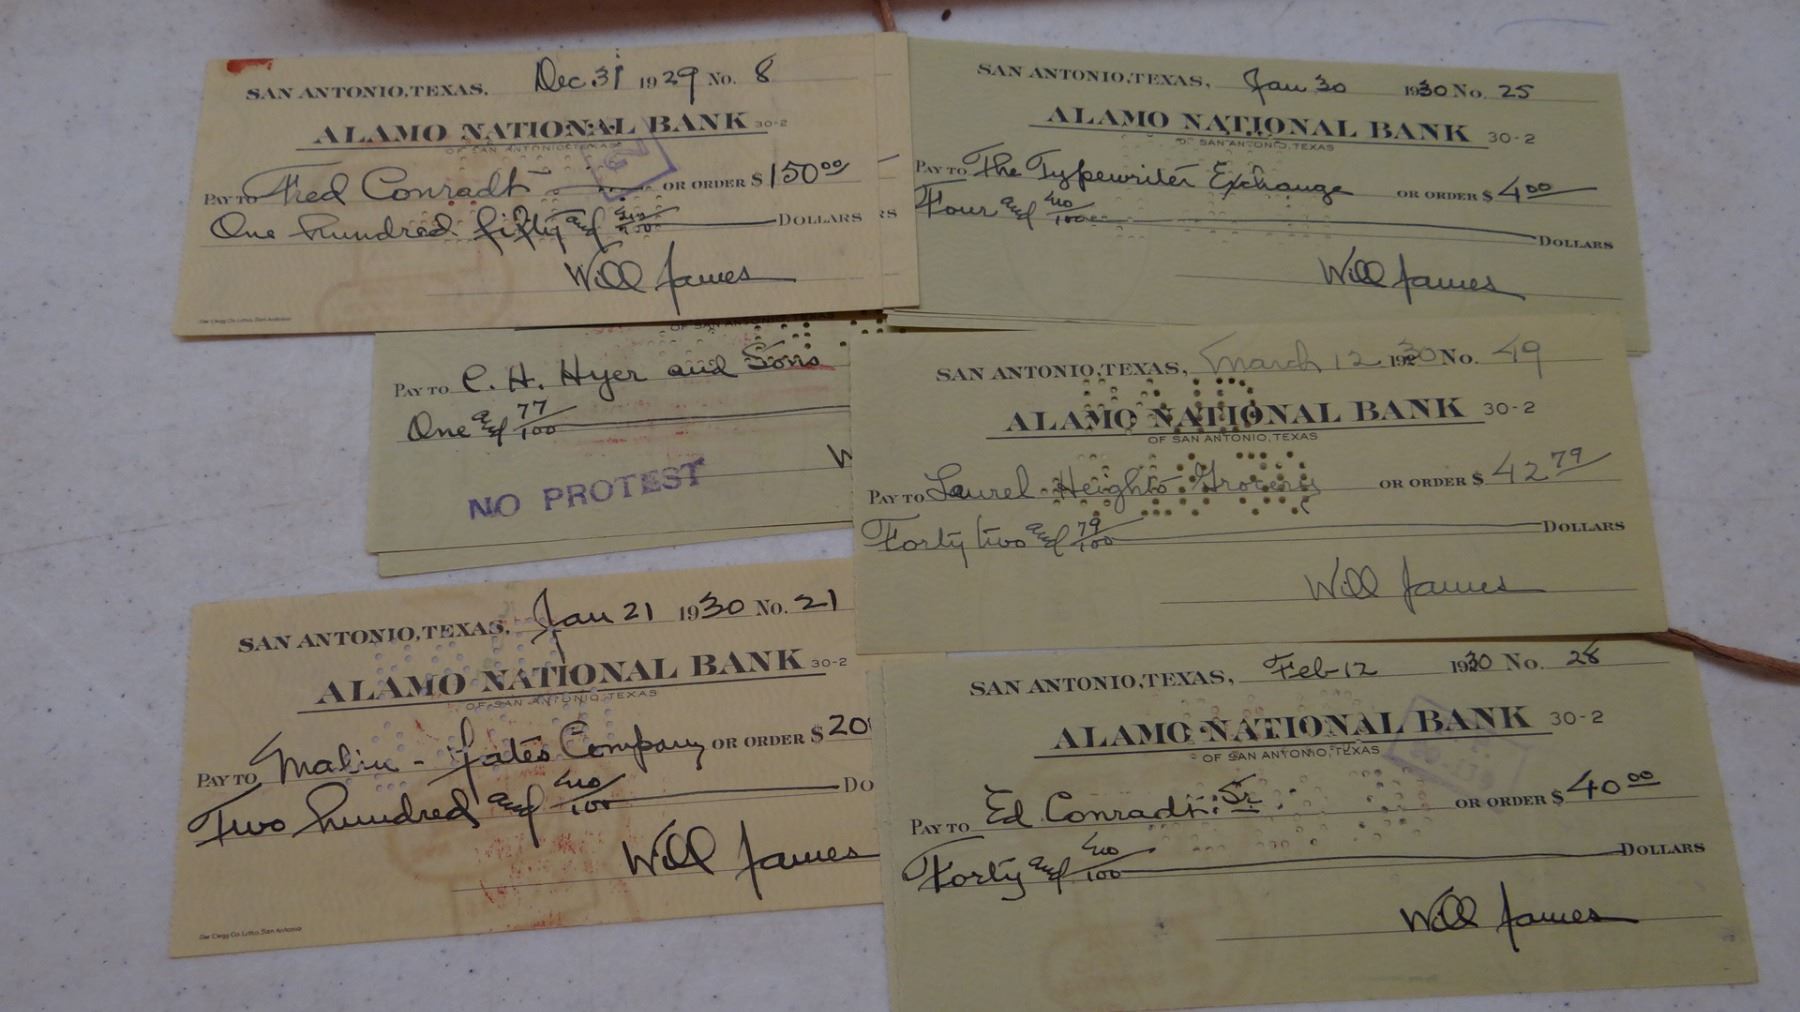 SAN ANTONIO, TEXAS, Dec 31 1929 No. 8
ALAMO NATIONAL BANK 30-2
OF SAN ANTONIO, TEXAS
PAY TO Fred Conradt OR ORDER $150 00
One hundred fifty and no/100 DOLLARS
Will James
SAN ANTONIO, TEXAS, Jan 30 1930 No. 25
ALAMO NATIONAL BANK 30-2
OF SAN ANTONIO, TEXAS
PAY TO The Typewriter Exchange OR ORDER $4 00
Four and no/100 DOLLARS
Will James
RS
OF SAN ANTONIO, TEXAS
PAY TO C. H. Hyer and Sons
One and 77/100
W
NO PROTEST
SAN ANTONIO, TEXAS, March 12 1930 No. 49
ALAMO NATIONAL BANK 30-2
OF SAN ANTONIO, TEXAS
PAY TO Laurel Heights Grocery OR ORDER $42 79
Forty two and 79/100 DOLLARS
Will James
SAN ANTONIO, TEXAS, Jan 21 1930 No. 21
ALAMO NATIONAL BANK 30-2
OF SAN ANTONIO, TEXAS
PAY TO Malin - Yates Company OR ORDER $200
Two hundred and no/100 DO
Will James
SAN ANTONIO, TEXAS, Feb-12 1930 No. 28
ALAMO NATIONAL BANK 30-2
OF SAN ANTONIO, TEXAS
PAY TO Ed Conradt. Sr. OR ORDER $40 00
Forty and no/100 DOLLARS
Will James